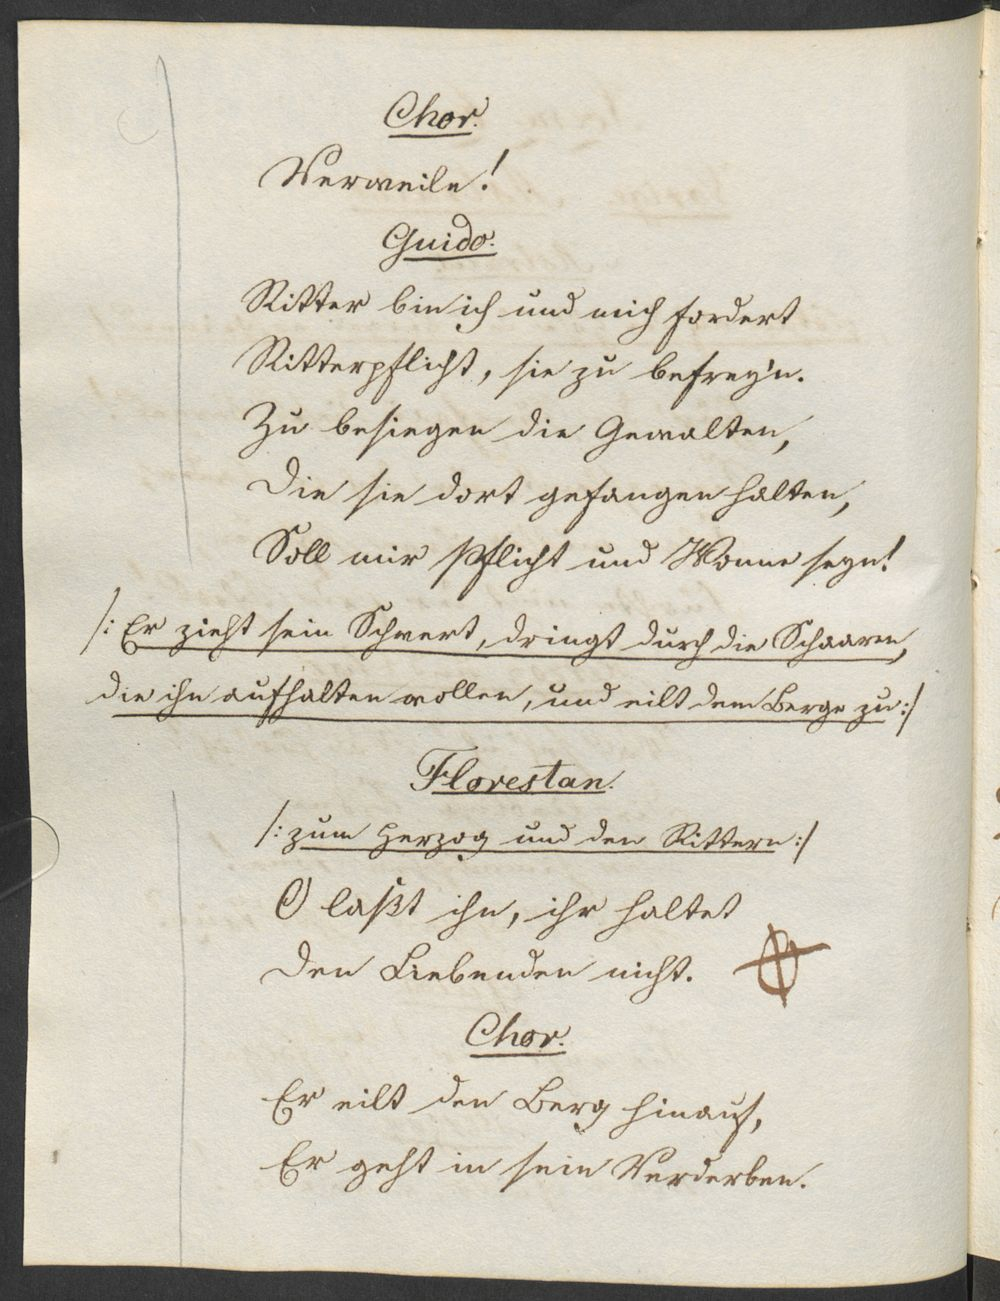 Chor.
Verweile!
Guido.
Ritter bin ich und mich fordert
Ritterpflicht, sie zu befrey'n.
Zu besiegen die Gewalten,
Die sie dort gefangen halten,
Soll mir Pflicht und Wonne seyn!
/: Er zieht sein Schwert, dringt durch die Schaaren,
die ihn aufhalten wollen, und eilt dem Berge zu :/
Florestan.
/: zum Herzog und den Rittern :/
O laßt ihn, ihr haltet
Den Liebenden nicht.
Chor.
Er eilt den Berg hinauf,
Er geht in sein Verderben.